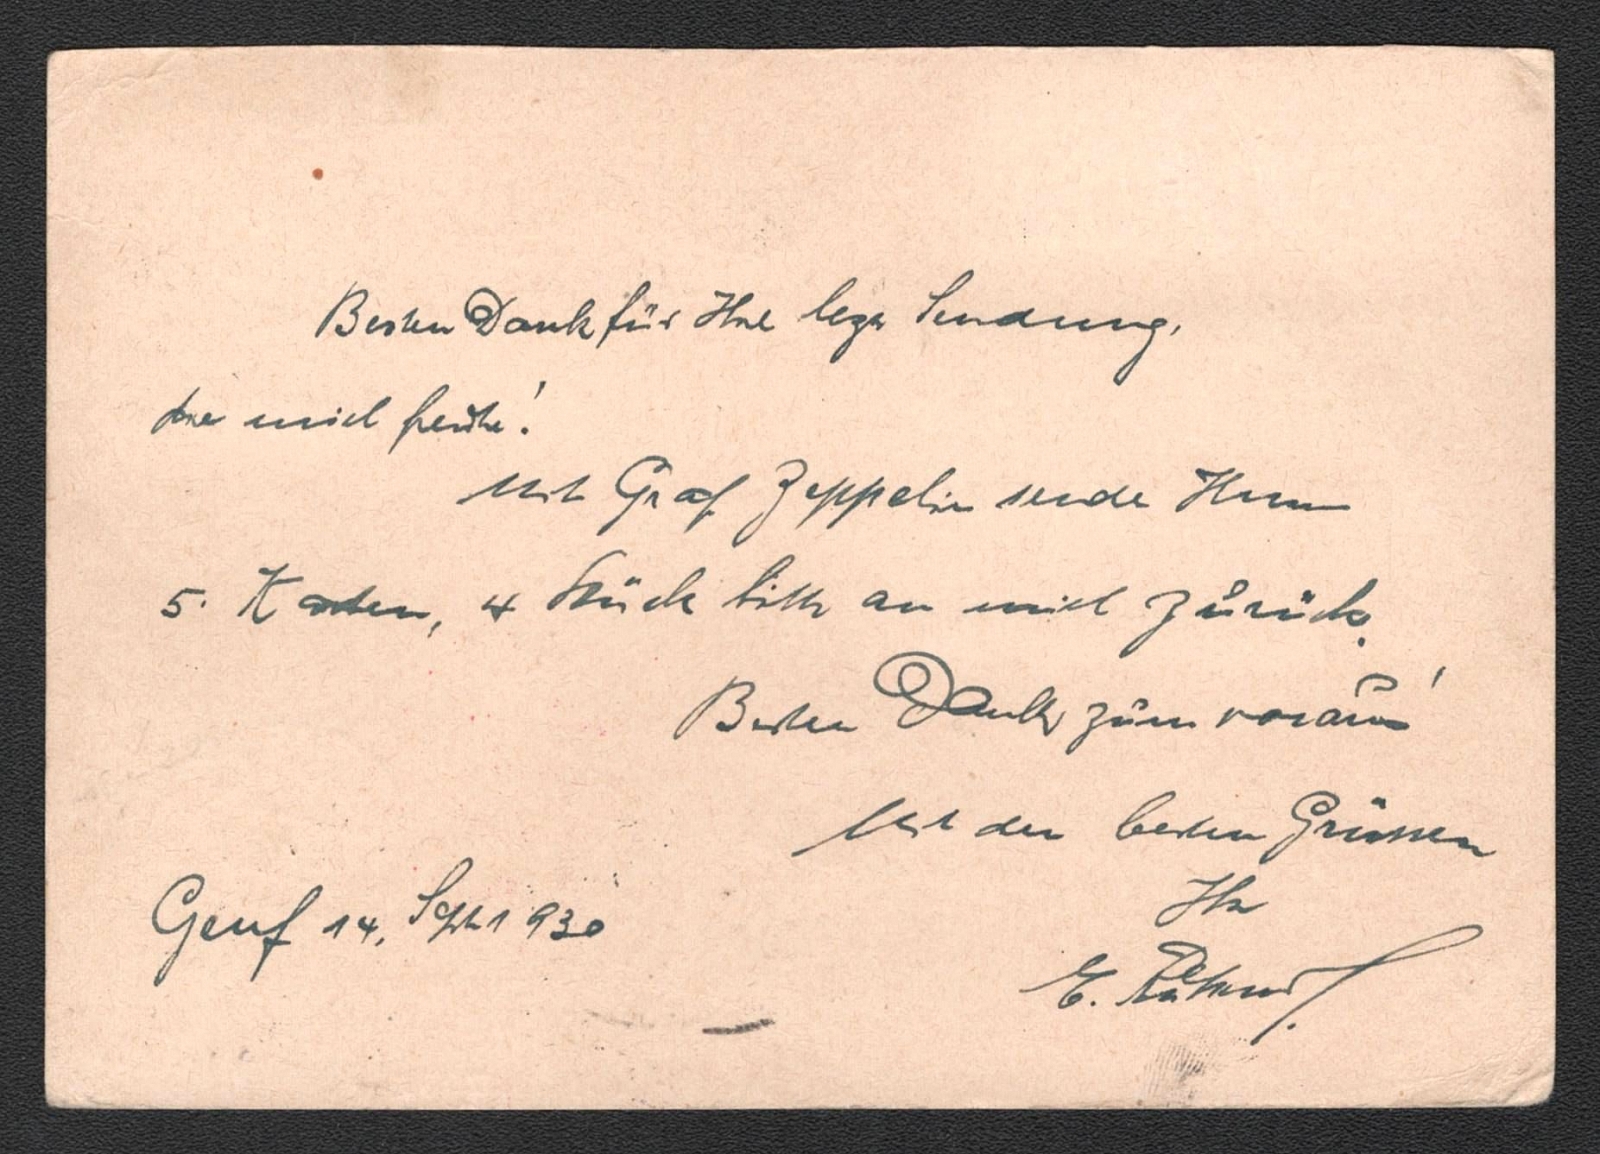 Besten Dank für Ihre letzte Sendung,
die mich freute!
Mit Graf Zeppelin sende Ihnen
5 Karten, 4 Stück bitte an mich zurück.
Besten Dank zum voraus!
Mit den besten Grüssen
Ihr
Genf 14. Sept 1930
E.